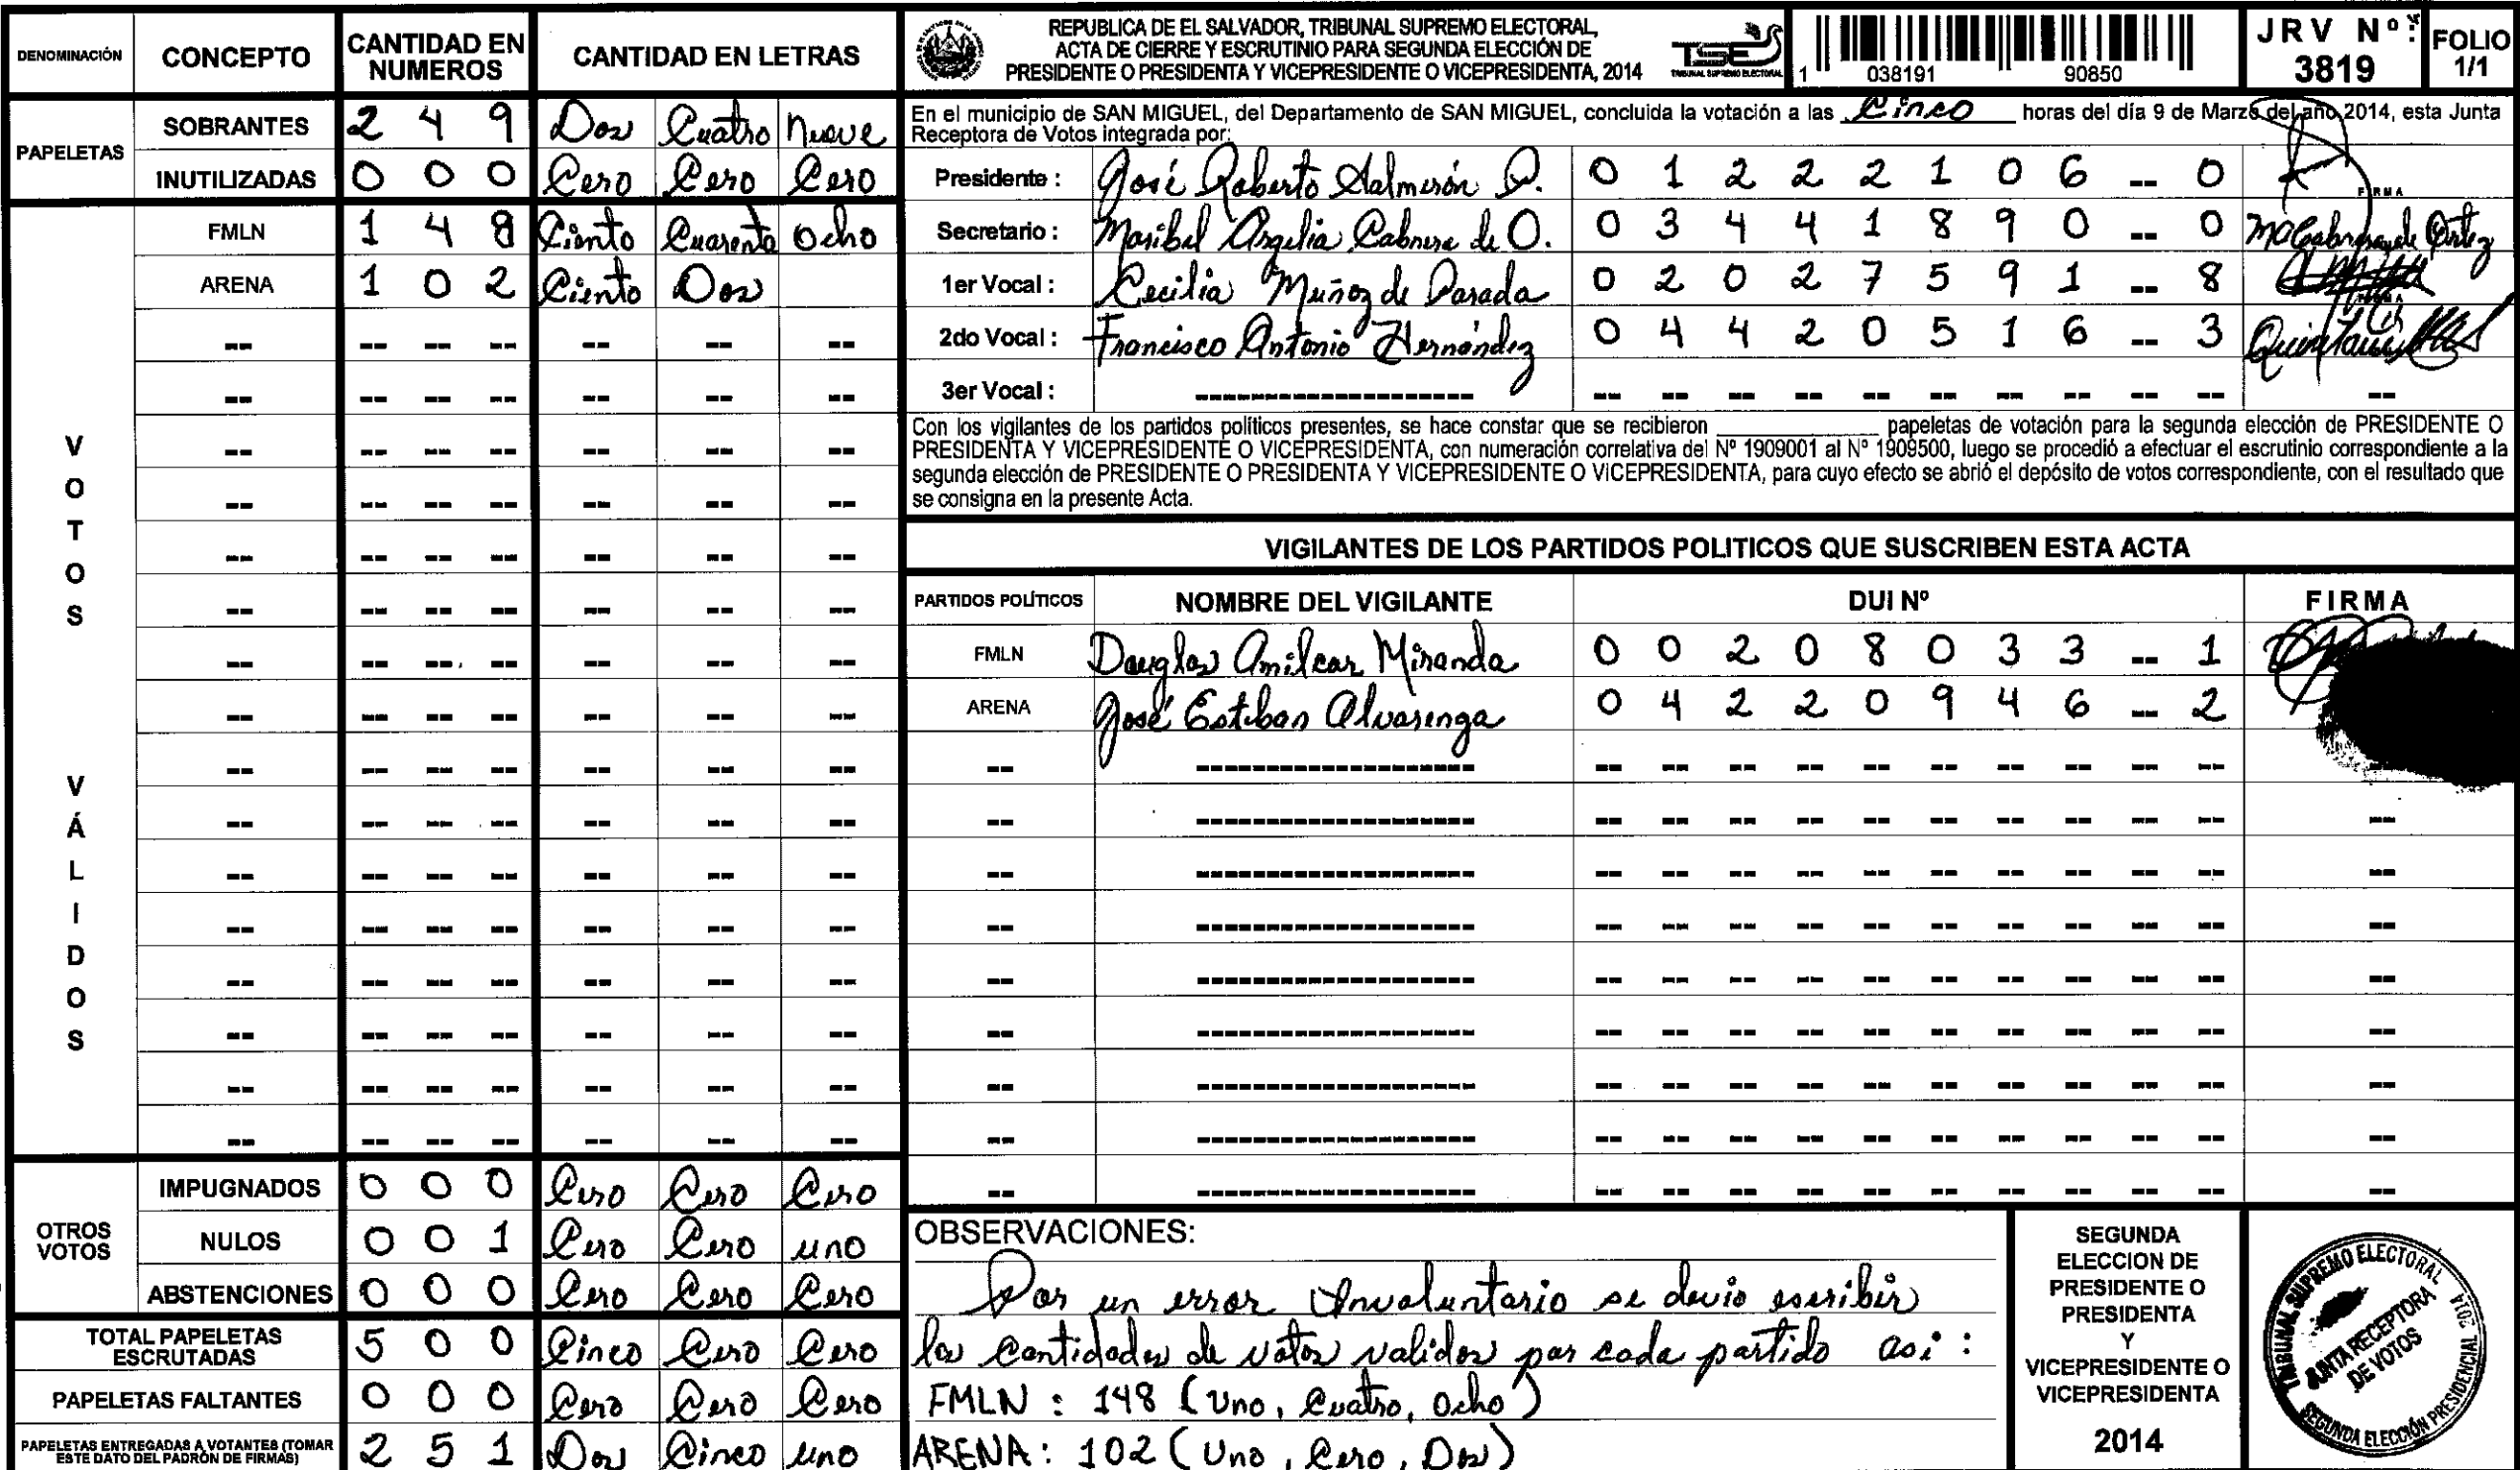 DENOMINACIÓN CONCEPTO CANTIDAD EN NUMEROS CANTIDAD EN LETRAS
PAPELETAS
SOBRANTES 2 4 9 Dos Cuatro Nueve
INUTILIZADAS 0 0 0 Cero Cero Cero
VOTOS VÁLIDOS
FMLN 1 4 8 Ciento Cuarenta Ocho
ARENA 1 0 2 Ciento Dos
OTROS VOTOS
IMPUGNADOS 0 0 0 Cero Cero Cero
NULOS 0 0 1 Cero Cero uno
ABSTENCIONES 0 0 0 Cero Cero Cero
TOTAL PAPELETAS ESCRUTADAS 5 0 0 Cinco Cero Cero
PAPELETAS FALTANTES 0 0 0 Cero Cero Cero
PAPELETAS ENTREGADAS A VOTANTES (TOMAR ESTE DATO DEL PADRÓN DE FIRMAS) 2 5 1 Dos Cinco uno
REPUBLICA DE EL SALVADOR, TRIBUNAL SUPREMO ELECTORAL,
ACTA DE CIERRE Y ESCRUTINIO PARA SEGUNDA ELECCIÓN DE
PRESIDENTE O PRESIDENTA Y VICEPRESIDENTE O VICEPRESIDENTA, 2014
TSE
TRIBUNAL SUPREMO ELECTORAL
1 038191 90850
JRV Nº:
3819
FOLIO
1/1
En el municipio de SAN MIGUEL, del Departamento de SAN MIGUEL, concluida la votación a las Cinco horas del día 9 de Marzo del año 2014, esta Junta
Receptora de Votos integrada por:
Presidente : José Roberto Salmerón P. 0 1 2 2 2 1 0 6 -- 0
FIRMA
Secretario : Maribel Argelia Cabrera de O. 0 3 4 4 1 8 9 0 -- 0
1er Vocal : Cecilia Muñoz de Parada 0 2 0 2 7 5 9 1 -- 8
2do Vocal : Francisco Antonio Hernández 0 4 4 2 0 5 1 6 -- 3
3er Vocal :
Con los vigilantes de los partidos políticos presentes, se hace constar que se recibieron ____________ papeletas de votación para la segunda elección de PRESIDENTE O
PRESIDENTA Y VICEPRESIDENTE O VICEPRESIDENTA, con numeración correlativa del Nº 1909001 al Nº 1909500, luego se procedió a efectuar el escrutinio correspondiente a la
segunda elección de PRESIDENTE O PRESIDENTA Y VICEPRESIDENTE O VICEPRESIDENTA, para cuyo efecto se abrió el depósito de votos correspondiente, con el resultado que
se consigna en la presente Acta.
VIGILANTES DE LOS PARTIDOS POLITICOS QUE SUSCRIBEN ESTA ACTA
PARTIDOS POLÍTICOS NOMBRE DEL VIGILANTE DUI Nº FIRMA
FMLN Douglas Amilcar Miranda 0 0 2 0 8 0 3 3 -- 1
ARENA José Esteban Alvarenga 0 4 2 2 0 9 4 6 -- 2
OBSERVACIONES:
Por un error Involuntario se devio escribir
las cantidades de votos validos por cada partido asi :
FMLN : 148 (Uno, Cuatro, Ocho)
ARENA : 102 (Uno, Cero, Dos)
SEGUNDA
ELECCION DE
PRESIDENTE O
PRESIDENTA
Y
VICEPRESIDENTE O
VICEPRESIDENTA
2014
TRIBUNAL SUPREMO ELECTORAL
JUNTA RECEPTORA
DE VOTOS
SEGUNDA ELECCIÓN PRESIDENCIAL 2014